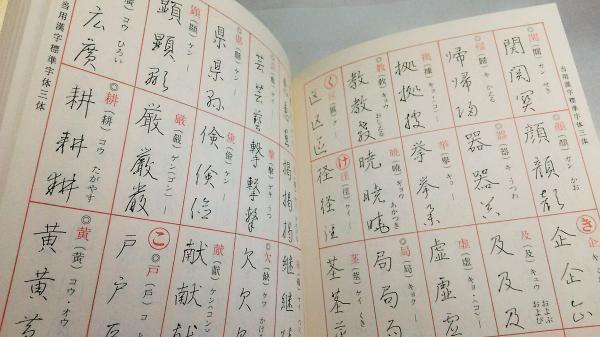 当用漢字標準字体三体
関 (關) カン せき
関関
顔 (顏) ガン かお
顔顔
き
企 キ
企企
帰 キ かえる
帰帰
器 (器) キ うつわ
器器
及 (及) キュウ およぶ および
及及及
拠 (據) キョ・コ
拠拠
挙 (擧) キョ
挙挙
虚 (虛) キョ(コ)
虚虚
教 (敎) キョウ おしえる
教教
暁 (曉) ギョウ あかつき
暁暁
局 (局) キョク
局局局
く
区区
け
径 (徑) ケイ
径径
茎 (莖) ケイ くき
茎茎
掲掲
継継
芸芸
撃 (擊) ゲキ うつ
撃撃
欠 (缺) ケツ
欠欠
県 (縣) ケン
県県
倹 (儉) ケン
倹倹
献 (獻) ケン(コン)
献献
顕 (顯) ケン
顕顕
厳 (嚴) ゲン(ゴン)
厳厳
こ
戸 (戶) コ
戸戸
(廣) コウ ひろい
広廣
耕 (耕) コウ たがやす
耕耕耕
黄 (黃) コウ・オウ
黄黄
当用漢字標準字体三体